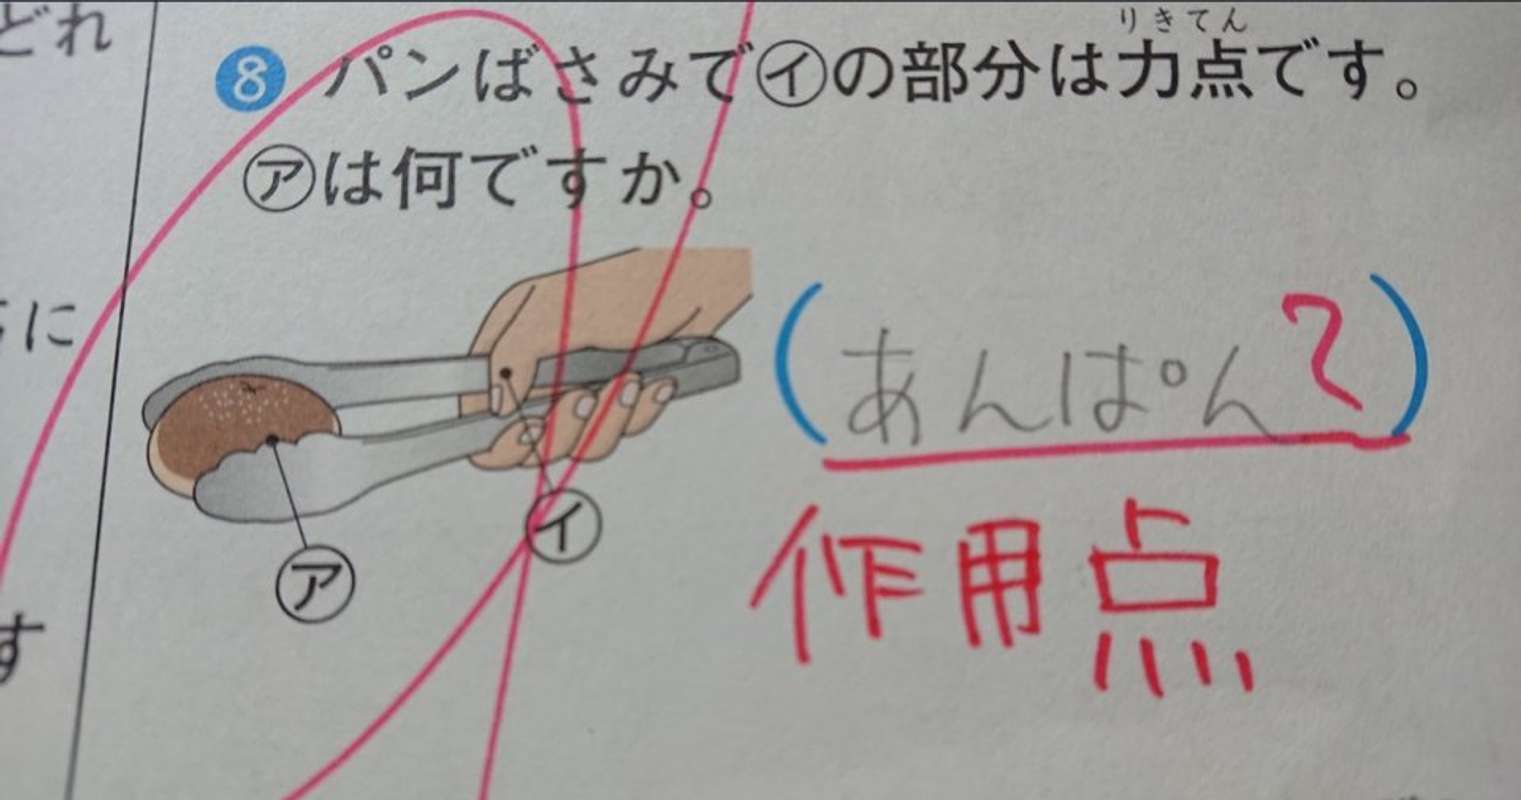 どれ
8 パンばさみで㋑の部分は力点です。
りきてん
㋐は何ですか。
に
(あんぱん?)
作用点
㋑
㋐
す